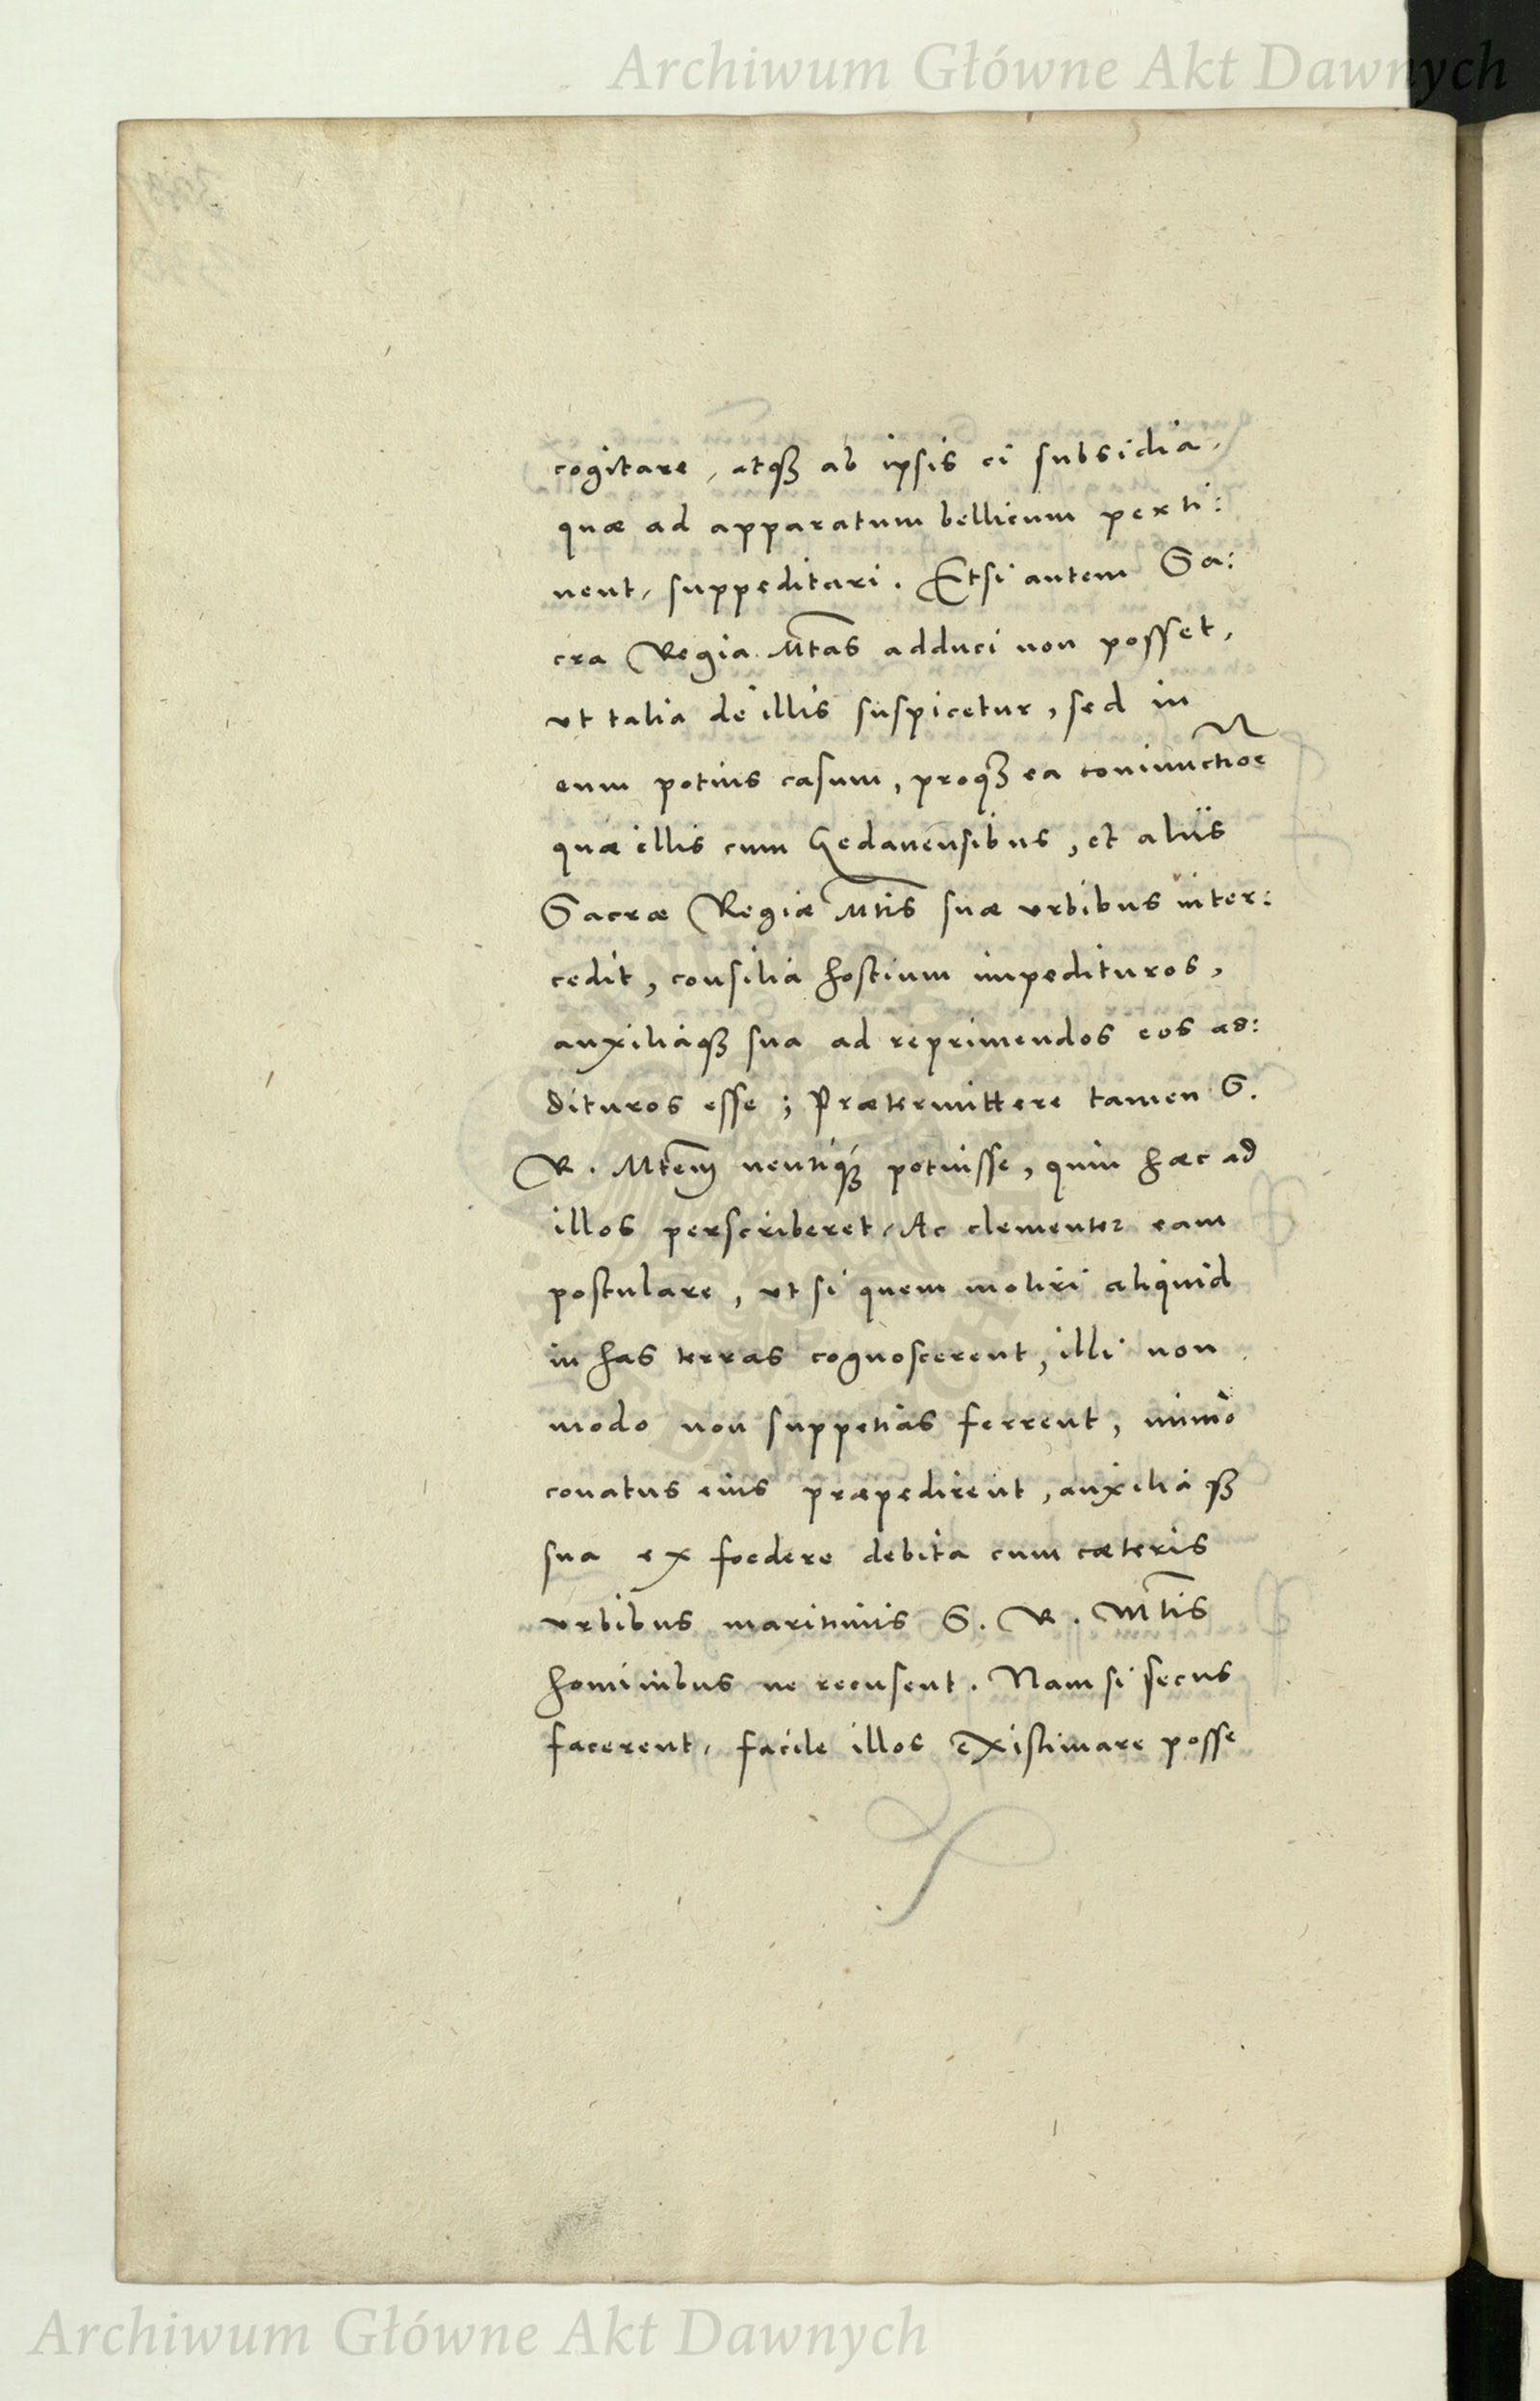 Archiwum Główne Akt Dawnych
cogitare, atqꝫ ab ipsis ei subsidia,
quæ ad apparatum bellicum perti:
nent, suppeditari. Etsi autem Sa:
cra Regia Mtas adduci non posset,
vt talia de illis suspicetur, sed in
eum potius casum, proqꝫ ea coniunctioe
quæ illis cum Gedanensibus, et aliis
Sacræ Regiæ Mtis suæ vrbibus inter:
cedit, consilia hostium impedituros,
auxiliaqꝫ sua ad reprimendos eos ad:
dituros esse; Prætermittere tamen S.
R. Mtem neutiqꝫ potuisse, quin hæc ad
illos perscriberet, Ac clementer eam
postulare, vt si quem moliri aliquid
in has terras cognoscerent, illi non
modo non suppetias ferrent, immo
conatus eius præpedirent, auxiliaqꝫ
sua ex foedere debita cum cæteris
vrbibus maritimis S. R. Mtis
hominibus ne recusent. Nam si secus
facerent, facile illos existimare posse
Archiwum Główne Akt Dawnych